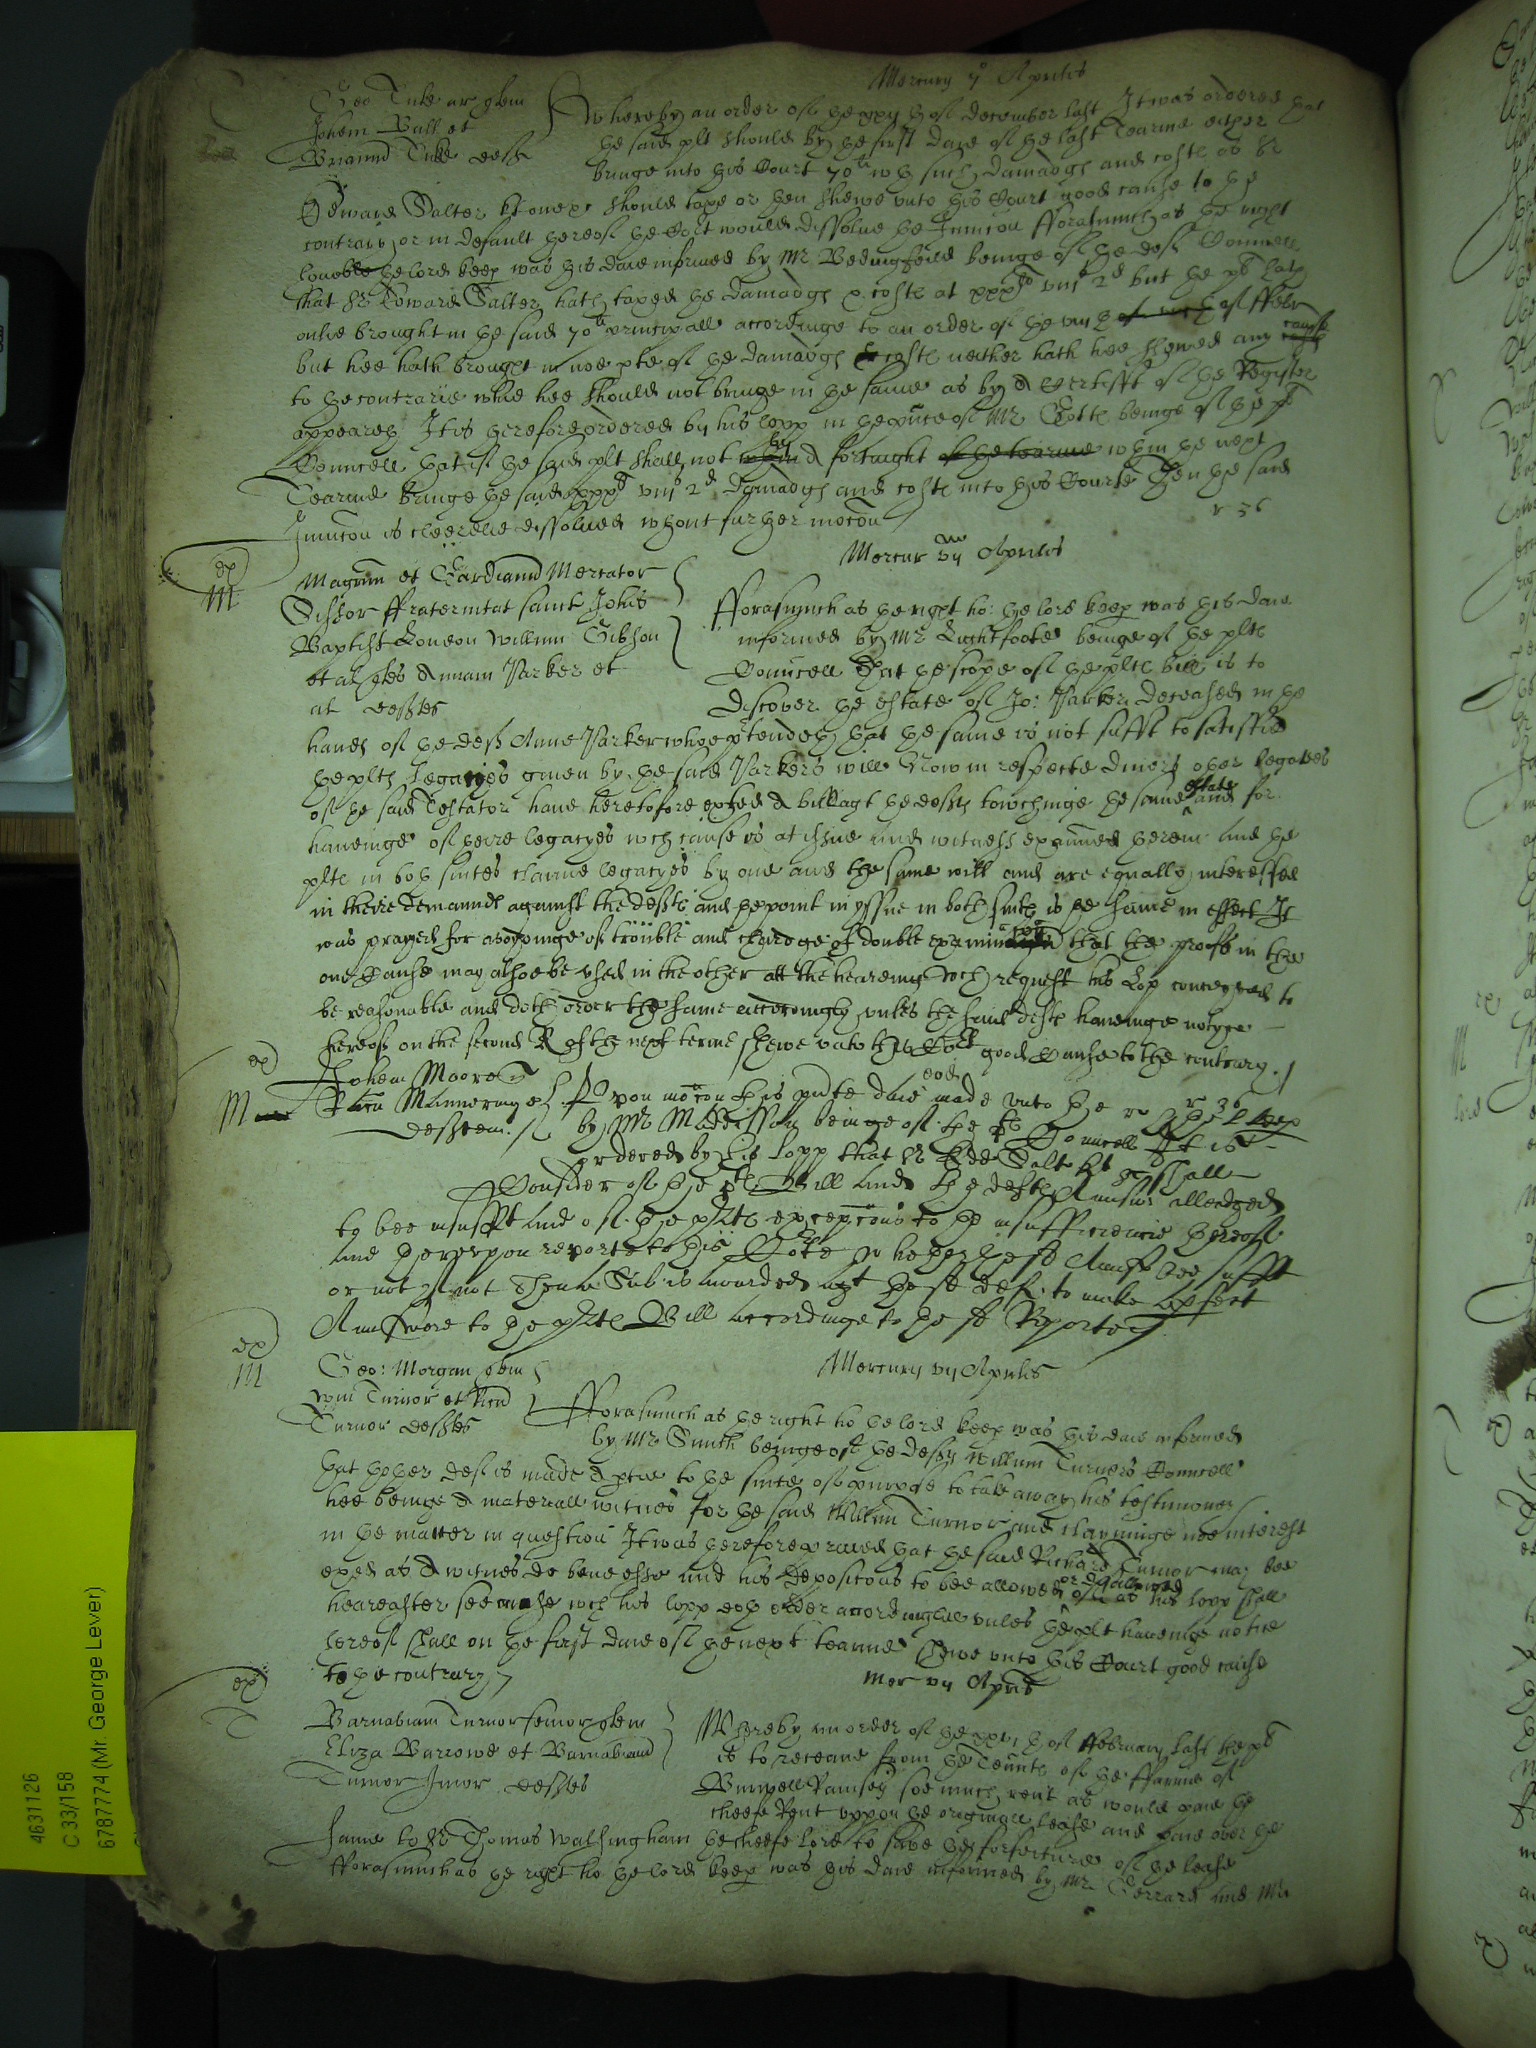 Mercury 7o Aprilis
Geo Tuke ar quer
Johem Bull et
Briannu Tuke deff
Whereby an order of the xxij th of December last It was ordered that
the said plt should by the first daie of the last Tearme either
bringe into this Court 70li wth such damadgs and costs as Sr
Edward Salter kt one &c should taxe or then shewe unto this Court good cause to the
contrary or in default thereof the Cort would dissolve the Iniuncon fforasmuch as the right
honoble the lord keep was this daie informed by Mr Bedingfeild beinge of the def Councell
that Sr Edward Salter hath taxed the damadgs & costs at viijs 2d but the plt hath
onlie brought in the said 70li principall accordinge to an order of the viijth of ffebr
but hee hath brought in noe pte of the damadgs & costs neither hath hee shewed any cause
to the contrarie whie hee should not bringe in the same as by a Certifft of the Register
appeareth It is therefore ordered by his lopp in the pñce of Mr beinge of the plt
Councell that if the said plt shall not by a fortnight of the tearme wthin the next
Tearme bringe the said viijs 2d damadgs and costs into this Courte Then the said
Iniuncon is cleerelie dissolved wthout further mocon
r 36
ex
M
Mercur vij Aprilis
Magrm et Gardianu Mercator
Scissor ffraternitat sancti Johis
Baptist London Willim Gibson
et al quer Annam Parker et
al deftes
fforasmuch as the right ho: the lord keep was this daie
informed by Mr Lightfoote beinge of the plts
Councell That the scope of the plts bill is to
discover the estate of Jo: Parker deceased in the
hands of the deft Anne Parker whoe ptendeth that the same is not sufft to satisfie
the plts legacyes given by the said Parkers will Now in respecte divers other legatees
of the said Testator have heretofore exhted a bill agt the defts towchinge the same estate and for
haveinge of theire legacyes wch cause is at issue and witness examined therein and the
plts in both suites claime legacyes by one and the same will and are equally interessed
in theire demaunds against the defts and the point in yssue in both suits is the same in effect It
was prayed for avoydinge of trouble and chardge of double examinacon that the proofs in the
one cause may alsoe be used in the other att the hearinge wch request his Lop conceyved to
be reasonable and doth order the same accordingly unles the said defts haveinge notyce
thereof on the second R of the next terme shewe unto this Cort good cause to the contrary.
ex
M
eod
r 36
Johem Moore
Ricu Mannering
defftem.
Upon mocon this pnte daie made unto the r ho the L keep
by Mr Maddisson beinge of the plts Councell It is
ordered by his lopp that Sr Edd Salter kt &c shall
Consider of the plts Bill and the defts Answer alledged
to bee insufft and of the plts excepcons to the insufficiencie thereof
and thereupon reporte to this Corte whether the sd Answ bee sufft
or not if not Then a Sub is awarded agt the sd deft to make a pfect
Answere to the plts Bill accordinge to the sd Reporte
ex
M
Geo: Morgan quer
Wm Turnor et Ricu
Turnor deftes
Mercury vij Aprilis
fforasmuch as the right ho the lord keep was this daie informed
by Mr Smith beinge of the deft Willim Turnors Councell
that thother deft is made a ptie to the suite of purpose to take away his testimoney
hee beinge a materiall witnes for the said Willim Turnor and clayminge noe interest
in the matter in question It was therefore praied that the said Richard Turnor may bee
exed as a witnes de bene esse and his depositions to bee allowed or disallowed of as his lopp shall
heareafter see cause wch his lopp doth order accordinglie unles the plt haveinge notice
thereof shall on the first daie of the next tearme shewe unto this Court good cause
to the contrary
ex
T
Mer vij Aprilis
Barnabiam Turnor senior quer
Eliza Barrowe et Barnabiam
Turnor Junior deftes
Whereby an order of the xxvjth of ffebruary last the plt
is to receave from the Tennts of the ffarme of
Ramsey soe much rent as would paie the
cheefe Rent uppon the originall lease and paie over the
same to Sr Thomas Walsingham the cheefe lord to save the forfeiture of the lease
fforasmuch as the right ho the lord keep was this daie informed by Mr Gerrard and Mr
4631126
C 33/158
6787774 (Mr. George Lever)